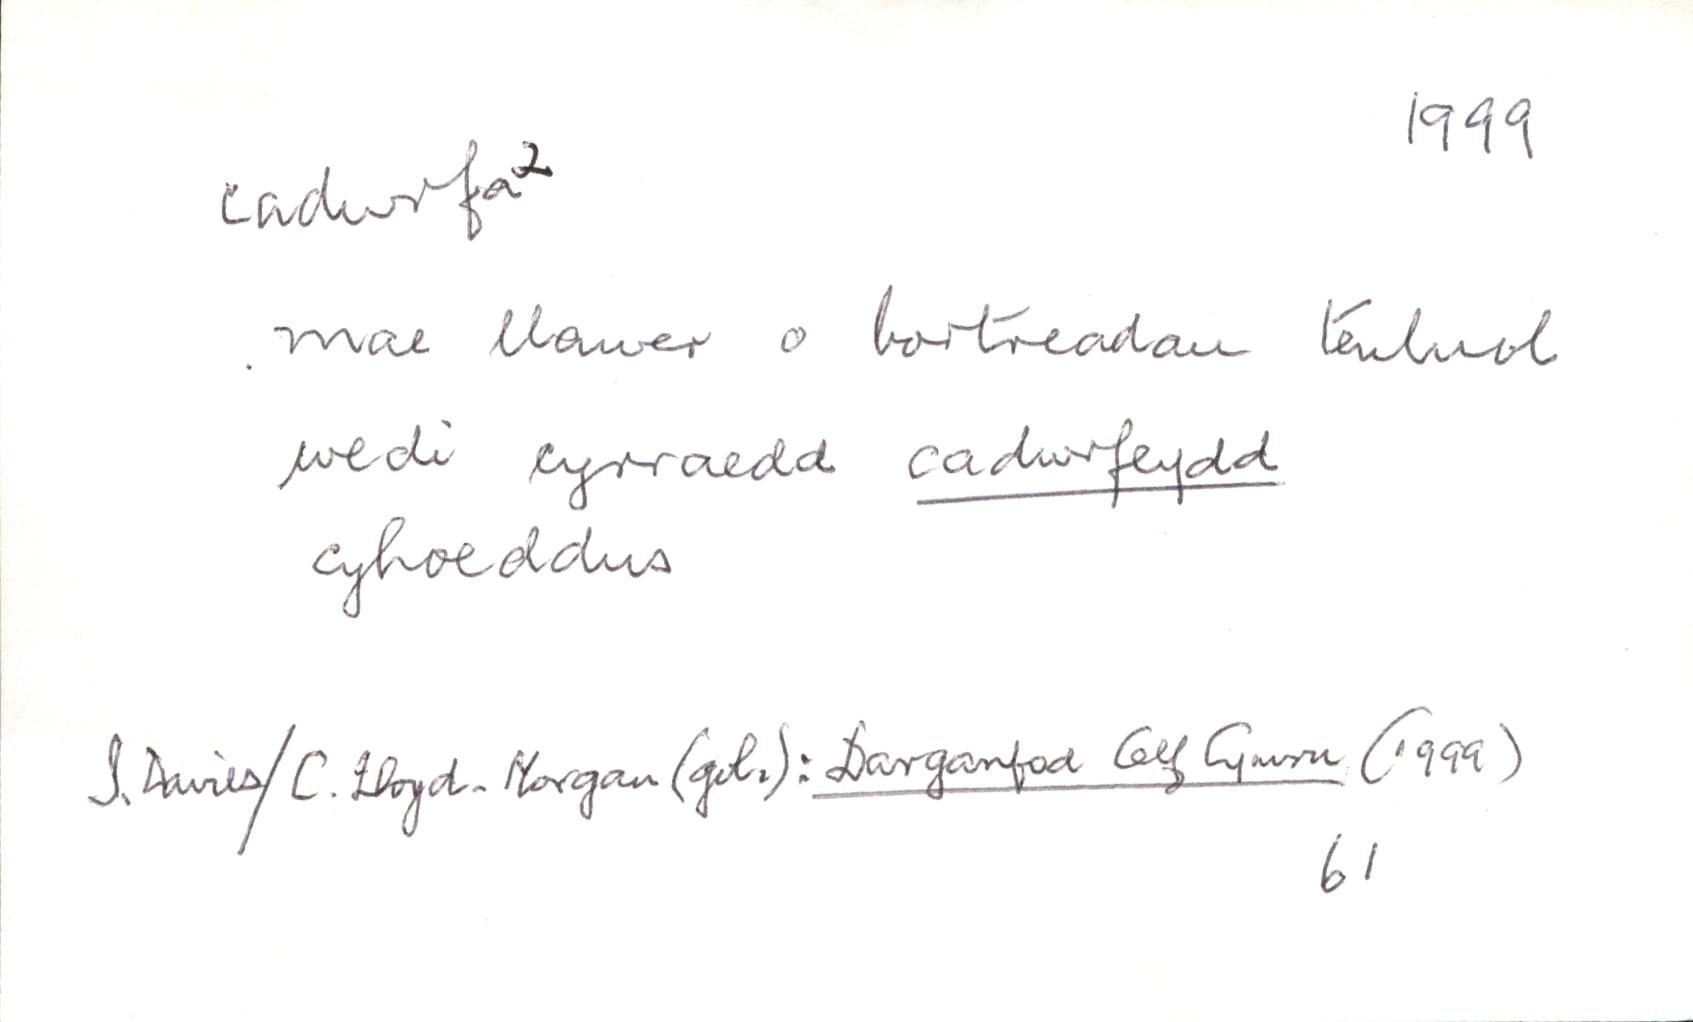 1999
cadwrfa²
mae llawer o bortreadau teuluol
wedi cyrraedd cadwrfeydd
cyhoeddus
I. Davies/C. Lloyd-Morgan (gol.): Darganfod Celf Cymru (1999)
61